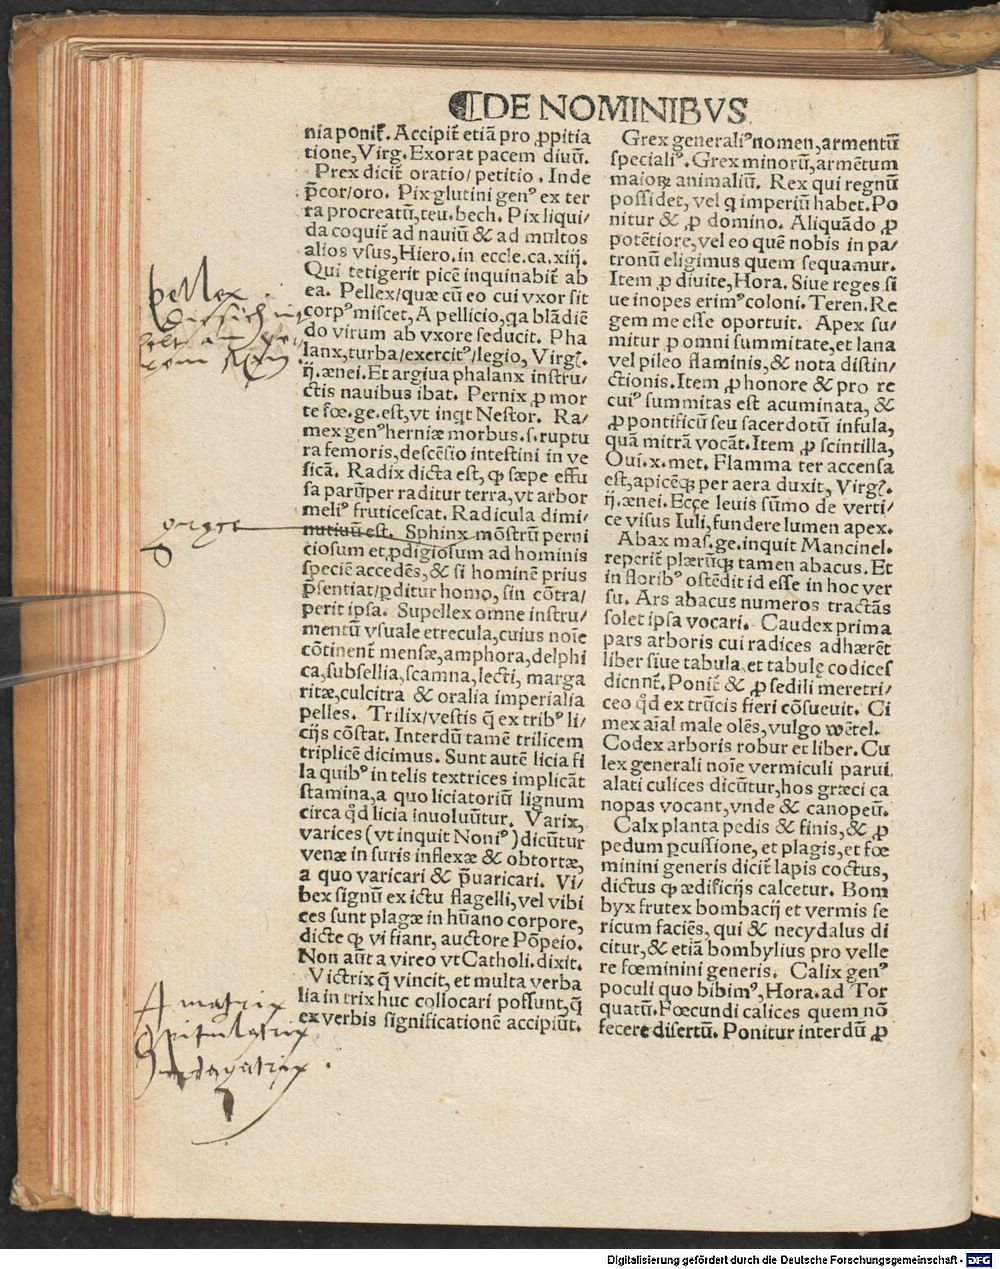 ⸿DE NOMINIBVS
nia ponit᷑. Accipit᷑ etiā pro ꝓpitia
tione, Virg. Exorat pacem diuū.
Prex dicit᷑ oratio/ petitio. Inde
p̄cor/oro. Pix glutini genꝰ ex ter
ra procreatū, teu. bech. Pix liqui/
da coquit᷑ ad nauiū & ad multos
alios vsus, Hiero. in eccle. ca. xiij.
Qui tetigerit picē inquinabit᷑ ab
ea. Pellex/quæ cū eo cui vxor sit
corpꝰ miscet, A pellicio, qa blādiē
do virum ab vxore seducit. Pha
lanx, turba/exercitꝰ/legio, Virgꝭ.
ij. ænei. Et argiua phalanx instru/
ctis nauibus ibat. Pernix ꝓ mor
te fœ. ge. est, vt inqt Nestor. Ra/
mex genꝰ herniæ morbus. s. ruptu
ra femoris, descēsio intestini in ve
sicā. Radix dicta est, ꝙ sæpe effu
sa parūper raditur terra, vt arbor
meliꝰ fruticescat. Radicula dimi/
nutiuū est. Sphinx mōstrū perni
ciosum et ꝓdigiosum ad hominis
speciē accedēs, & si hominē prius
p̄sentiat/ꝑditur homo, sin cōtra/
perit ipsa. Supellex omne instru/
mentū vsuale et recula, cuius noīe
cōtinent᷑ mensæ, amphora, delphi
ca, subsellia, scamna, lecti, marga
ritæ, culcitra & oralia imperialia
pelles. Trilix/vestis q̄ ex tribꝰ li/
cijs cōstat. Interdū tamē trilicem
triplicē dicimus. Sunt autē licia fi
la quibꝰ in telis textrices implicāt
stamina, a quo liciatoriū lignum
circa qd̄ licia inuoluūtur. Varix,
varices (vt inquit Noniꝰ) dicūtur
venæ in suris inflexæ & obtortæ,
a quo varicari & p̄uaricari. Vi/
bex signū ex ictu flagelli, vel vibi
ces sunt plagæ in hūano corpore,
dicte ꝙ vi fiant, auctore Pōpeio.
Non aūt a vireo vt Catholi. dixit.
Victrix q̄ vincit, et multa verba
lia in trix huc collocari possunt, q̄
ex verbis significationē accipiūt.
Grex generaliꝰ nomen, armentū
specialiꝰ. Grex minorū, armētum
maioꝝ animaliū. Rex qui regnū
possidet, vel q imperiū habet. Po
nitur & ꝓ domino. Aliquādo ꝓ
potētiore, vel eo quē nobis in pa/
tronū eligimus quem sequamur.
Item ꝓ diuite, Hora. Siue reges si
ue inopes erimꝰ coloni. Teren. Re
gem me esse oportuit. Apex su/
mitur ꝓ omni summitate, et lana
vel pileo flaminis, & nota distin/
ctionis. Item ꝓ honore & pro re
cuiꝰ summitas est acuminata, &
ꝓ pontificū seu sacerdotū infula,
quā mitrā vocāt. Item ꝓ scintilla,
Oui. x. met. Flamma ter accensa
est, apicēqꝫ per aera duxit, Virgꝭ.
ij. ænei. Ecce leuis sūmo de verti/
ce visus Iuli, fundere lumen apex.
Abax mas. ge. inquit Mancinel.
reperit᷑ plærūqꝫ tamen abacus. Et
in floribꝰ ostēdit id esse in hoc ver
su. Ars abacus numeros tractās
solet ipsa vocari. Caudex prima
pars arboris cui radices adhærēt
liber siue tabula, et tabulę codices
dicunt᷑. Ponit᷑ & ꝓ sedili meretri/
ceo qd̄ ex trūcis fieri cōsueuit. Ci
mex aīal male olēs, vulgo wētel.
Codex arboris robur et liber. Cu
lex generali noīe vermiculi parui
alati culices dicūtur, hos græci ca
nopas vocant, vnde & canopeū.
Calx planta pedis & finis, & ꝓ
pedum ꝑcussione, et plagis, et fœ
minini generis dicit᷑ lapis coctus,
dictus ꝙ ædificijs calcetur. Bom
byx frutex bombacij et vermis se
ricum faciēs, qui & necydalus di
citur, & etiā bombylius pro velle
re fœminini generis. Calix genꝰ
poculi quo bibimꝰ, Hora. ad Tor
quatū. Fœcundi calices quem nō
fecere disertū. Ponitur interdū ꝓ
pellex
Amatrix
Opitulatrix
Indagatrix
Digitalisierung gefördert durch die Deutsche Forschungsgemeinschaft - DFG